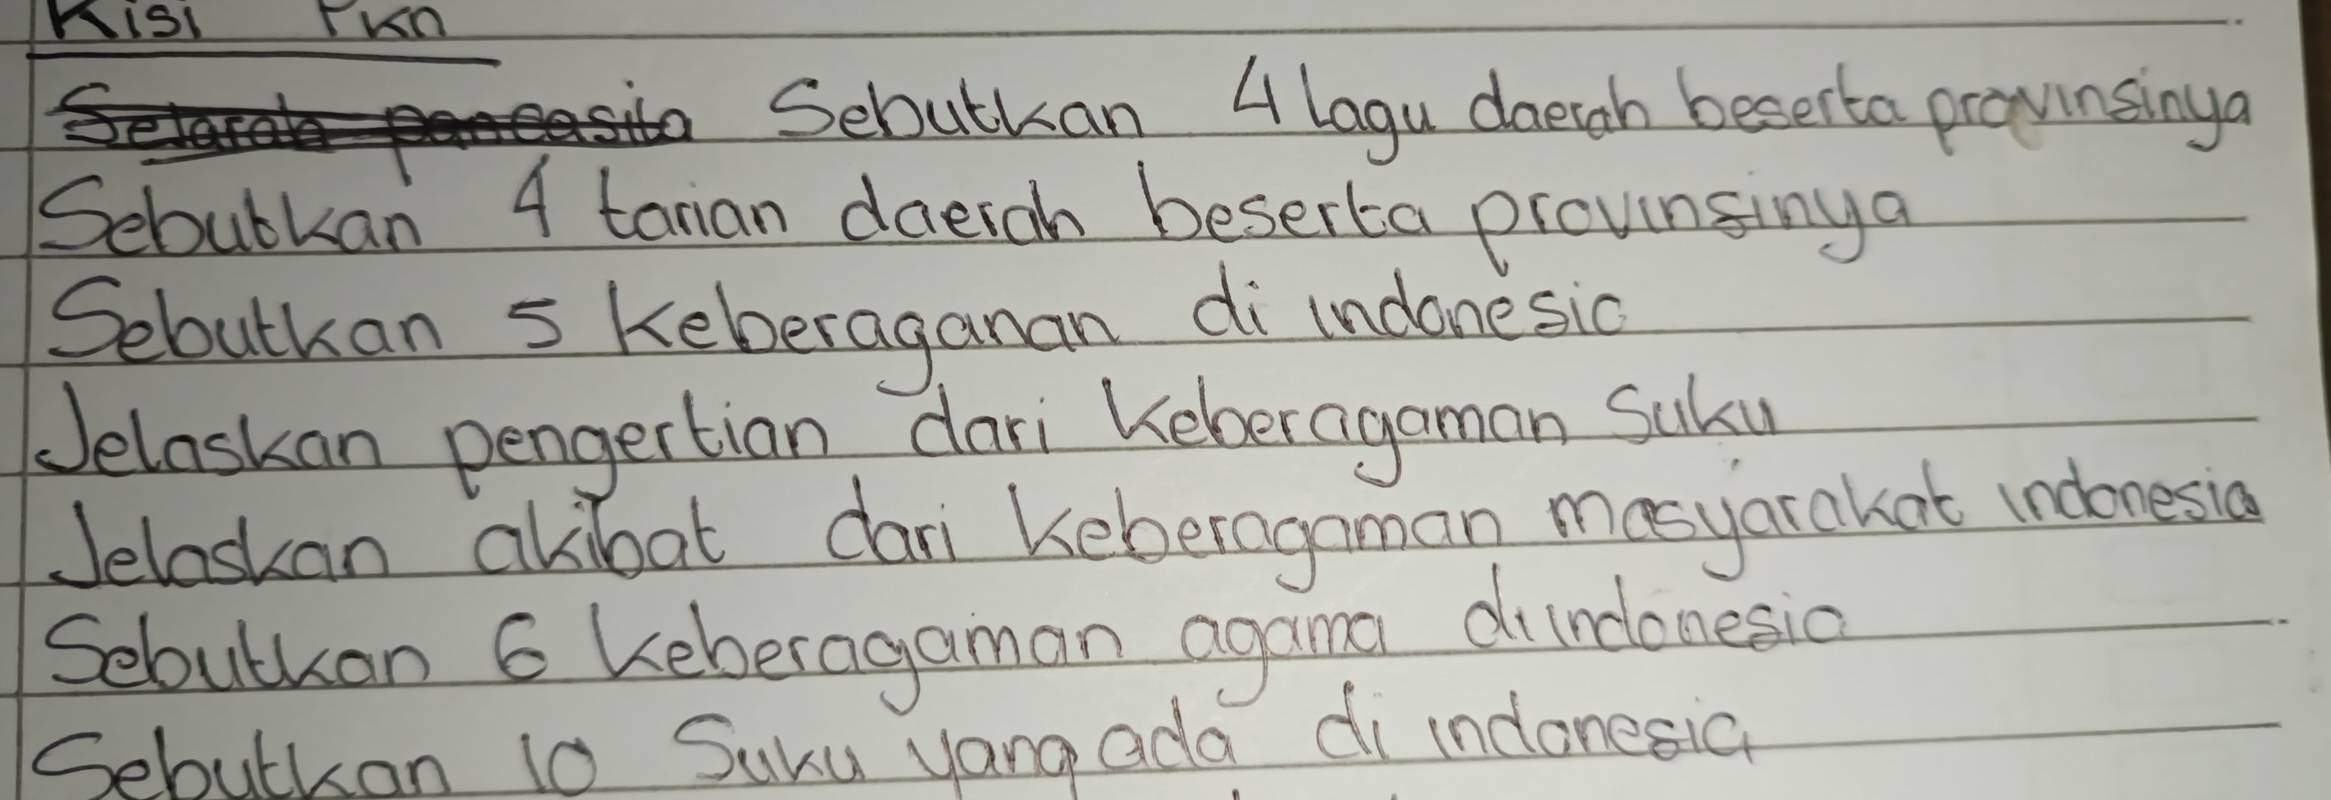 Kisi Pkn
Sejarah pancasila Sebutkan 4 lagu daerah beserta provinsinya
Sebutkan 4 tarian daerah beserta provinsinya
Sebutkan 5 Keberaganan di indonesia
Jelaskan pengertian dari Keberagaman Suku
Jelaskan akibat dari Keberagaman masyarakat indonesia
Sebutkan 6 Keberagaman agama diindonesia
Sebutkan 10 Suku yang ada di indonesia